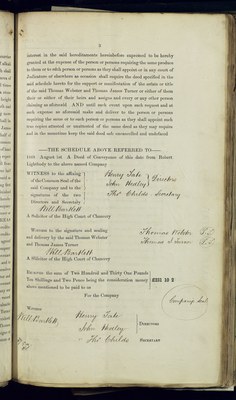 3
interest in the said hereditaments hereinbefore expressed to be hereby
granted at the expense of the person or persons requiring the same produce
to them or to such person or persons as they shall appoint or in any court of
Judicature or elsewhere as occasion shall require the deed specified in the
said schedule hereto for the support or manifestation of the estate or title
of the said Thomas Webster and Thomas James Turner or either of them
their or either of their heirs and assigns and every or any other person
claiming as aforesaid AND until such event upon such request and at
such expense as aforesaid make and deliver to the person or persons
requiring the same or to such person or persons as they shall appoint such
true copies attested or unattested of the same deed as they may require
and in the meantime keep the said deed safe uncancelled and undefaced
—THE SCHEDULE ABOVE REFERRED TO—
August 1st A Deed of Conveyance of this date from Robert
to the above named Company
WITNESS to the affixing
of the Common Seal of the
said Company and to the
signatures of the two
Directors and Secretary
Henry Tate
John Hedley
Directors
Thos Childs Secretary
Will Bartlett
A Solicitor of the High Court of Chancery
WITNESS to the signing and sealing
and delivery by the said Thomas Webster
and Thomas James Turner
Thomas Webster
Will Bartlett
A Solicitor of the High Court of Chancery
RECEIVED the sum of Two Hundred and Thirty One Pounds
Ten Shillings and Two Pence being the consideration money
above mentioned to be paid to us
£231 10 2
For the Company
WITNESS
Will Bartlett
Henry Tate
John Hedley
DIRECTORS
Thos Childs
SECRETARY